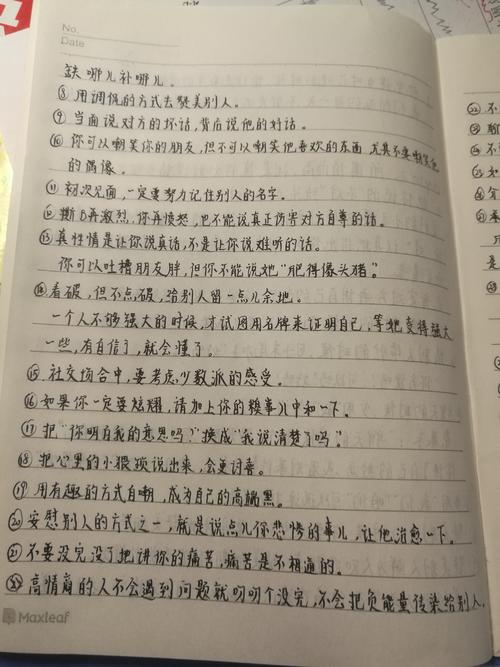 No.
Date
缺哪儿补哪儿。
⑧ 用调侃的方式去赞美别人。
⑨ 当面说对方的坏话，背后说他的好话。
⑩ 你可以嘲笑你的朋友，但不可以嘲笑他喜欢的东西，尤其不要嘲笑他
的偶像。
⑪ 初次见面，一定要努力记住别人的名字。
⑫ 撕B再激烈，你再愤怒，也不能说真正伤害对方自尊的话。
⑬ 真性情是让你说真话，不是让你说难听的话。
你可以吐槽朋友胖，但你不能说她“肥得像头猪”。
⑭ 看破，但不点破，给别人留一点儿余地。
一个人不够强大的时候，才试图用名牌来证明自己，等她变得强大
一些，有自信了，就会懂了。
⑮ 社交场合中，要考虑少数派的感受。
⑯ 如果你一定要炫耀，请加上你的糗事儿中和一下。
⑰ 把“你明白我的意思吗？”换成“我说清楚了吗”。
⑱ 把心里的小猥琐说出来，会更讨喜。
⑲ 用有趣的方式自嘲，成为自己的高端黑。
⑳ 安慰别人的方式之一，就是说点儿你悲惨的事儿，让他治愈一下。
㉑ 不要没完没了把讲你的痛苦，痛苦是不相通的。
㉒ 高情商的人不会遇到问题就叨叨个没完，不会把负能量传染给别人，
Maxleaf